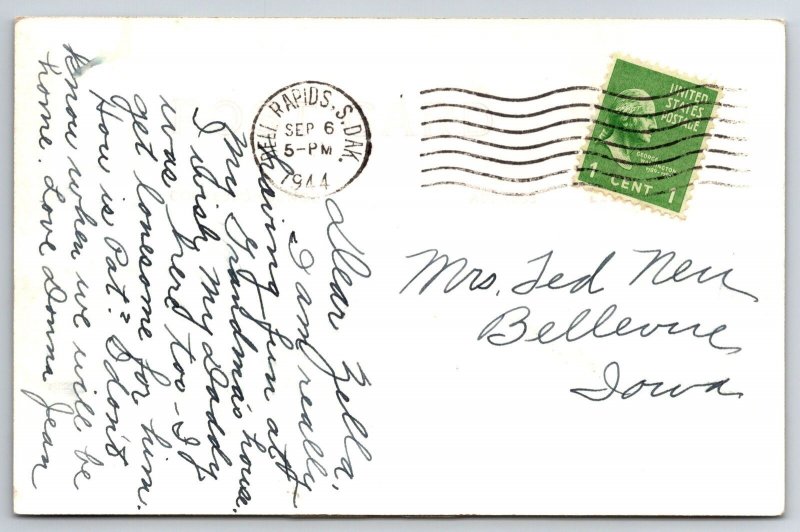 DELL RAPIDS. S. DAK.
SEP 6
5-PM
1944
UNITED
STATES
POSTAGE
1 CENT 1
Dear Zella,
I am really
having fun at
My Grandma's house.
I wish My Daddy
was here too - I
get lonesome for him.
How is Pat? I don't
know when we will be
home. Love Donna Jean
Mrs. Ted
Bellevue
Iowa